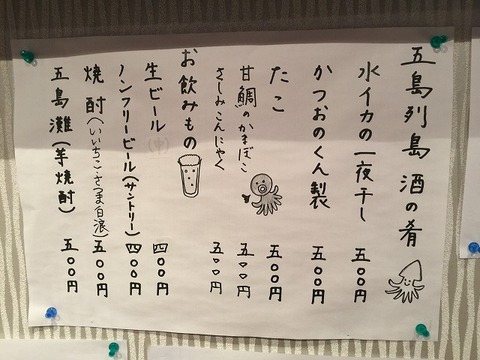 五島列島 酒の肴
水イカの一夜干し 五〇〇円
かつおのくん製 五〇〇円
たこ 五〇〇円
甘鯛のかまぼこ 五〇〇円
さしみこんにゃく 五〇〇円
お飲みもの
生ビール(中) 四〇〇円
ノンフリービール(サントリー) 四〇〇円
焼酎(いいちこ・さつま白波) 五〇〇円
五島灘(芋焼酎) 五〇〇円